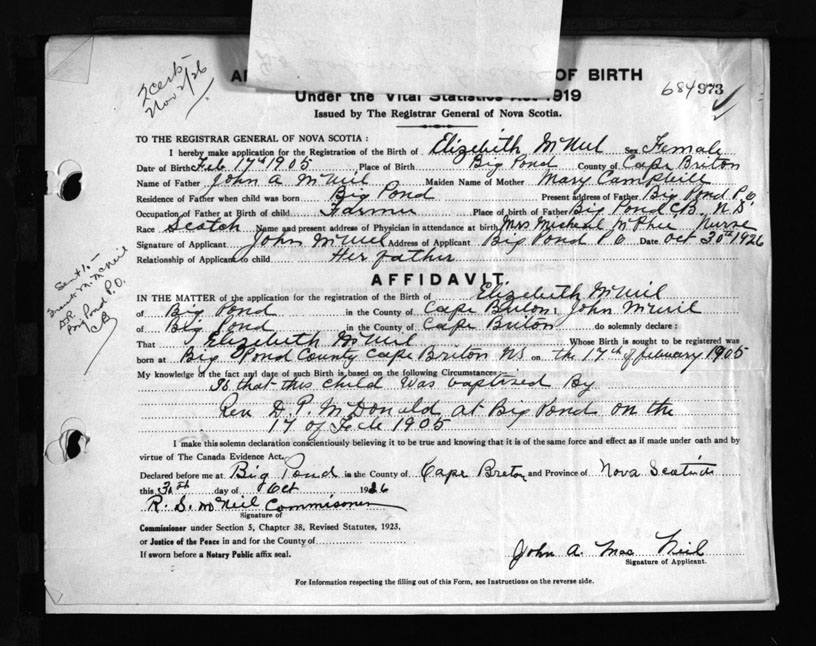 2 cert
Nov 2/26
OF BIRTH
684973
Under the Vital Statistics Act 1919
Issued by The Registrar General of Nova Scotia.
TO THE REGISTRAR GENERAL OF NOVA SCOTIA:
I hereby make application for the Registration of the Birth of Elizibeth McNeil Sex Female
Date of Birth Feb 17th 1905 Place of Birth Big Pond County of Cape Briton
Name of Father John A McNeil Maiden Name of Mother Mary Campbell
Residence of Father when child was born Big Pond Present address of Father Big Pond P.O.
Occupation of Father at Birth of child Farmer Place of birth of Father Big Pond C.B. N.S.
Race Scotch Name and present address of Physician in attendance at birth Mrs Micheal McPhee Nurse
Signature of Applicant John McNeil Address of Applicant Big Pond P.O. Date Oct 30th 1926
Relationship of Applicant to child Her father
Sent to -
McNeil
Big Pond P.O.
CB
AFFIDAVIT
IN THE MATTER of the application for the registration of the Birth of Elizabeth McNeil
of Big Pond in the County of Cape Briton; John McNeil
of Big Pond in the County of Cape Briton do solemnly declare:
That Elizebeth McNeil Whose Birth is sought to be registered was
born at Big Pond County Cape Briton NS on the 17th of february 1905
My knowledge of the fact and date of such Birth is based on the following Circumstances:
Is that this child was baptised By
Rev D. P. McDonald at Big Pond on the
17 of Feb 1905
I make this solemn declaration conscientiously believing it to be true and knowing that it is of the same force and effect as if made under oath and by
virtue of The Canada Evidence Act.
Declared before me at Big Pond in the County of Cape Breton and Province of Nova Scotia
this 30th day of Oct 1926
R. S. McNeil Commisoner
Signature of
Commissioner under Section 5, Chapter 38, Revised Statutes, 1923,
or Justice of the Peace in and for the County of
If sworn before a Notary Public affix seal.
John A. Mac Neil
Signature of Applicant.
For Information respecting the filling out of this Form, see Instructions on the reverse side.